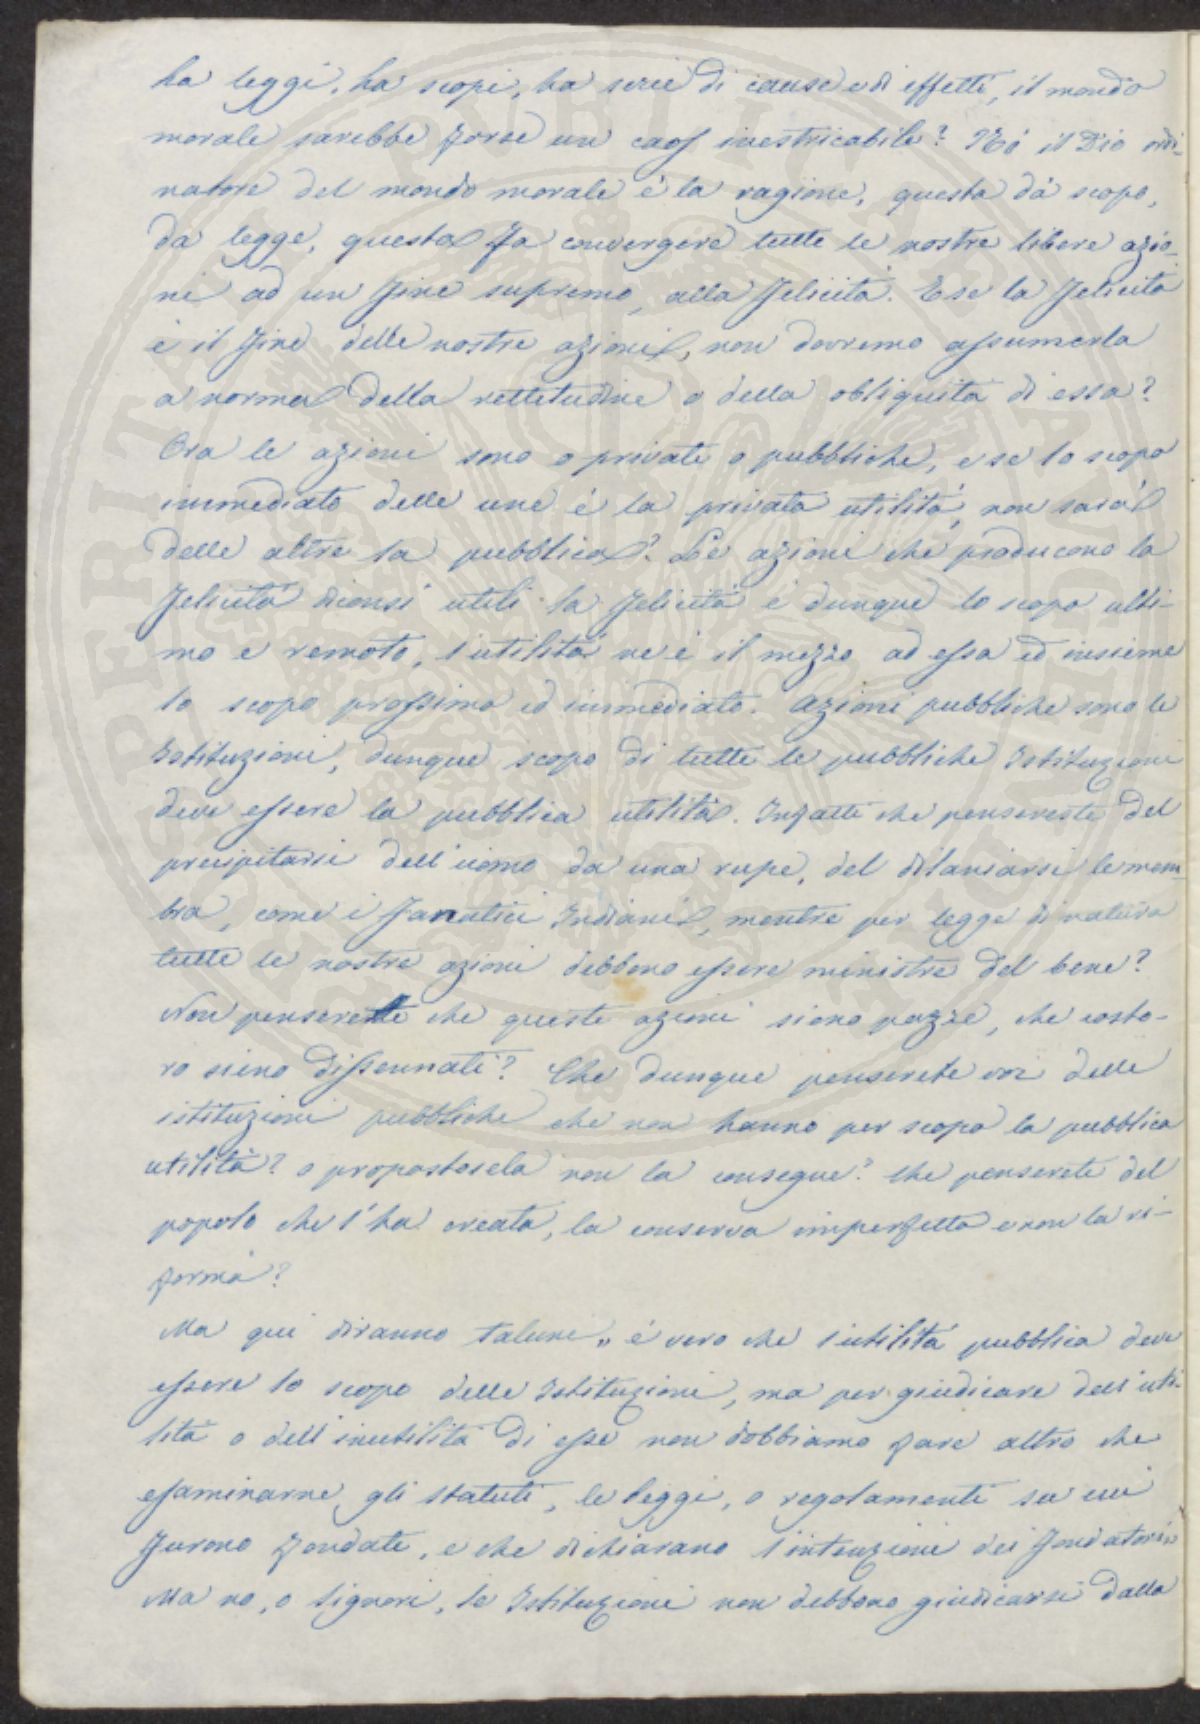 ha leggi, ha scopi, ha serie di cause e di effetti, il mondo
morale sarebbe forse un caos inestricabile? Nò il Dio ordi-
natore del mondo morale è la ragione, questa dà scopo,
dà legge, questa fa convergere tutte le nostre libere azio-
ni ad un fine supremo, alla felicità. E se la felicità
è il fine delle nostre azioni, non dovremo assumerla
a norma della rettitudine o della obliquità di essa?
Ora le azioni sono o private o pubbliche, e se lo scopo
immediato delle une è la privata utilità, non sarà
delle altre la pubblica? Le azioni che producono la
felicità diconsi utili: la felicità è dunque lo scopo ulti-
mo e remoto, l'utilità ne è il mezzo ad essa ed insieme
lo scopo prossimo ed immediato. Azioni pubbliche sono le
Istituzioni, dunque scopo di tutte le pubbliche Istituzioni
deve essere la pubblica utilità. Infatti che pensereste del
precipitarsi dell'uomo da una rupe, del dilaniarsi le mem-
bra, come i fanatici Indiani, mentre per legge di natura
tutte le nostre azioni debbono essere ministre del bene?
Non pensereste che queste azioni siano pazze, che costo-
ro sieno dissennati? Che dunque penserete voi delle
istituzioni pubbliche che non hanno per scopo la pubblica
utilità? o propostosela non la consegue? Che penserete del
popolo che l'ha creata, la conserva imperfetta e non la ri-
forma?
Ma qui diranno taluni „ è vero che l'utilità pubblica deve
essere lo scopo delle Istituzioni, ma per giudicare dell'uti-
lità o dell'inutilità di esse non dobbiamo fare altro che
esaminarne gli statuti, le leggi, o regolamenti su cui
furono fondate, e che dichiarano l'intenzioni dei fondatori„
Ma no, o Signori, le Istituzioni non debbono giudicarsi dalla